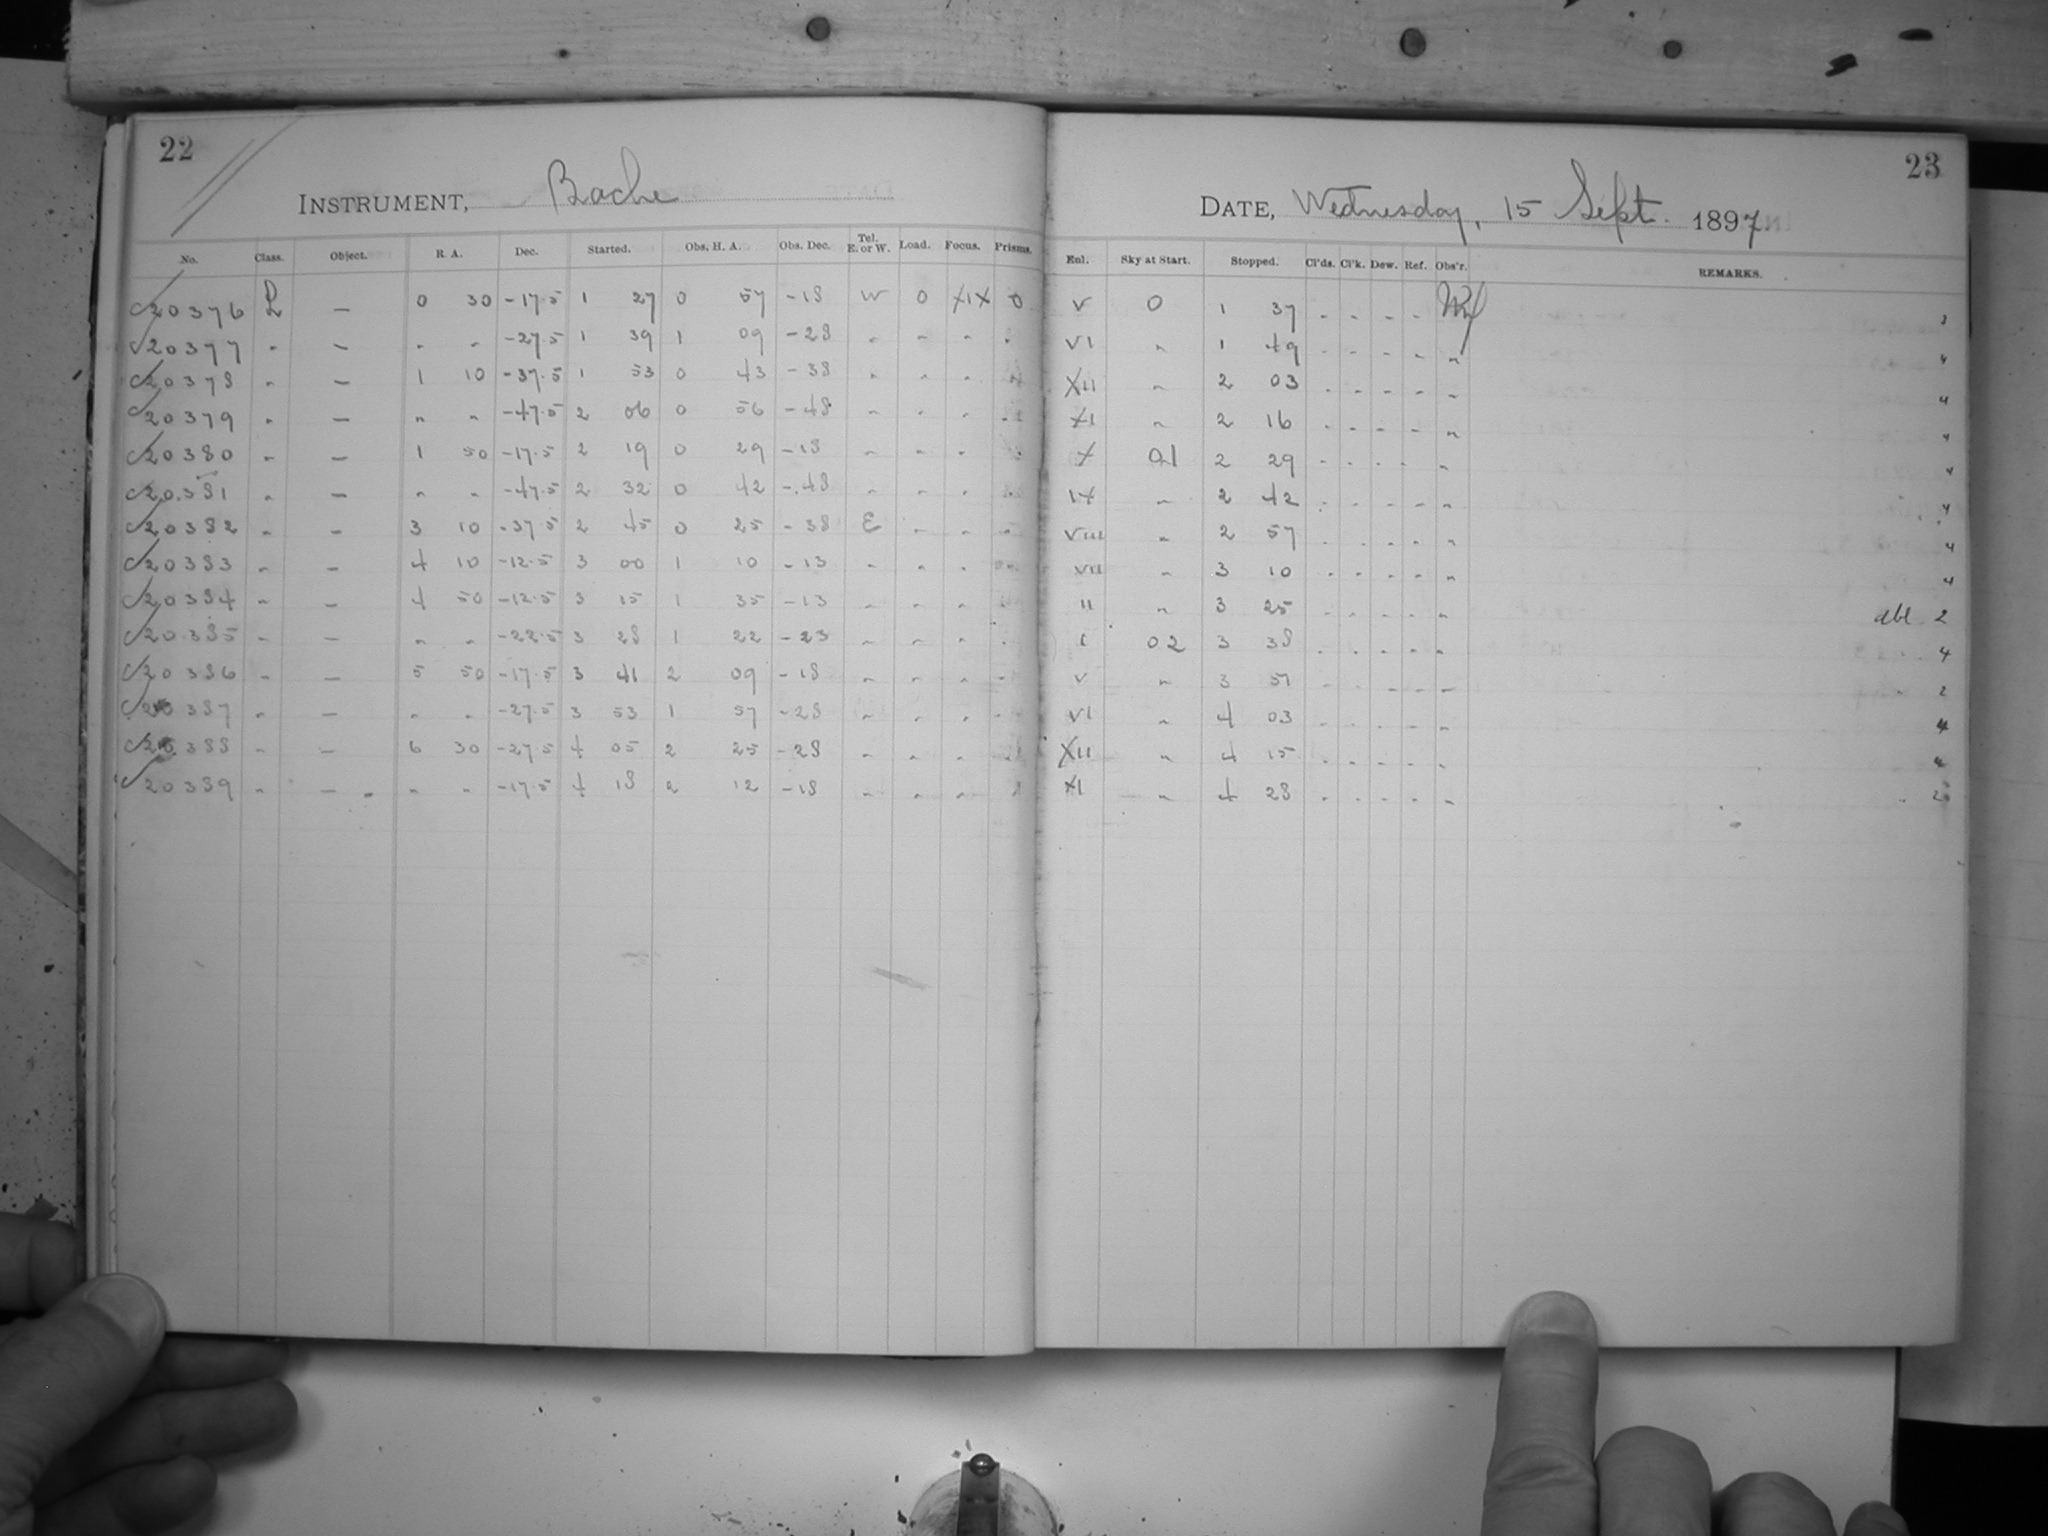 22
INSTRUMENT, Bache
No. Class. Object. R. A. Dec. Started. Obs. H. A. Obs. Dec. Tel. E. or W. Load. Focus. Prisms.
20376 L — 0 30 -17.5 1 27 0 57 -18 W 0 XIX 0
20377 " — " " -27.5 1 39 1 09 -28 " " " "
20378 " — 1 10 -37.5 1 53 0 43 -38 " " " "
20379 " — " " -47.5 2 06 0 56 -48 " " " "
20380 " — 1 50 -17.5 2 19 0 29 -18 " " " "
20381 " — " " -47.5 2 32 0 42 -48 " " " "
20382 " — 3 10 -37.5 2 45 0 25 -38 E " " "
20383 " — 4 10 -12.5 3 00 1 10 -13 " " " "
20384 " — 4 50 -12.5 3 15 1 35 -13 " " " "
20385 " — " " -22.5 3 28 1 22 -23 " " " "
20386 " — 5 50 -17.5 3 41 2 09 -18 " " " "
20387 " — " " -27.5 3 53 1 57 -28 " " " "
20388 " — 6 30 -27.5 4 05 2 25 -28 " " " "
20389 " — " " -17.5 4 18 2 12 -18 " " " "
23
DATE, Wednesday, 15 Sept. 1897
Enl. Sky at Start. Stopped. Cl'ds. Cl'k. Dew. Ref. Obs'r. REMARKS.
V 0 1 37 - - - -
VI " 1 49 - - - - " 4
XII " 2 03 - - - - " 4
XI " 2 16 - - - - " 4
X 01 2 29 - - - - " 4
IX " 2 42 - - - - " 4
VIII " 2 57 - - - - " 4
VII " 3 10 - - - - " 4
II " 3 25 - - - - " dbl 2
I 02 3 38 - - - - " 4
V " 3 51 - - - - " 2
VI " 4 03 - - - - " 4
XII " 4 15 - - - - " 4
XI " 4 28 - - - - " 2